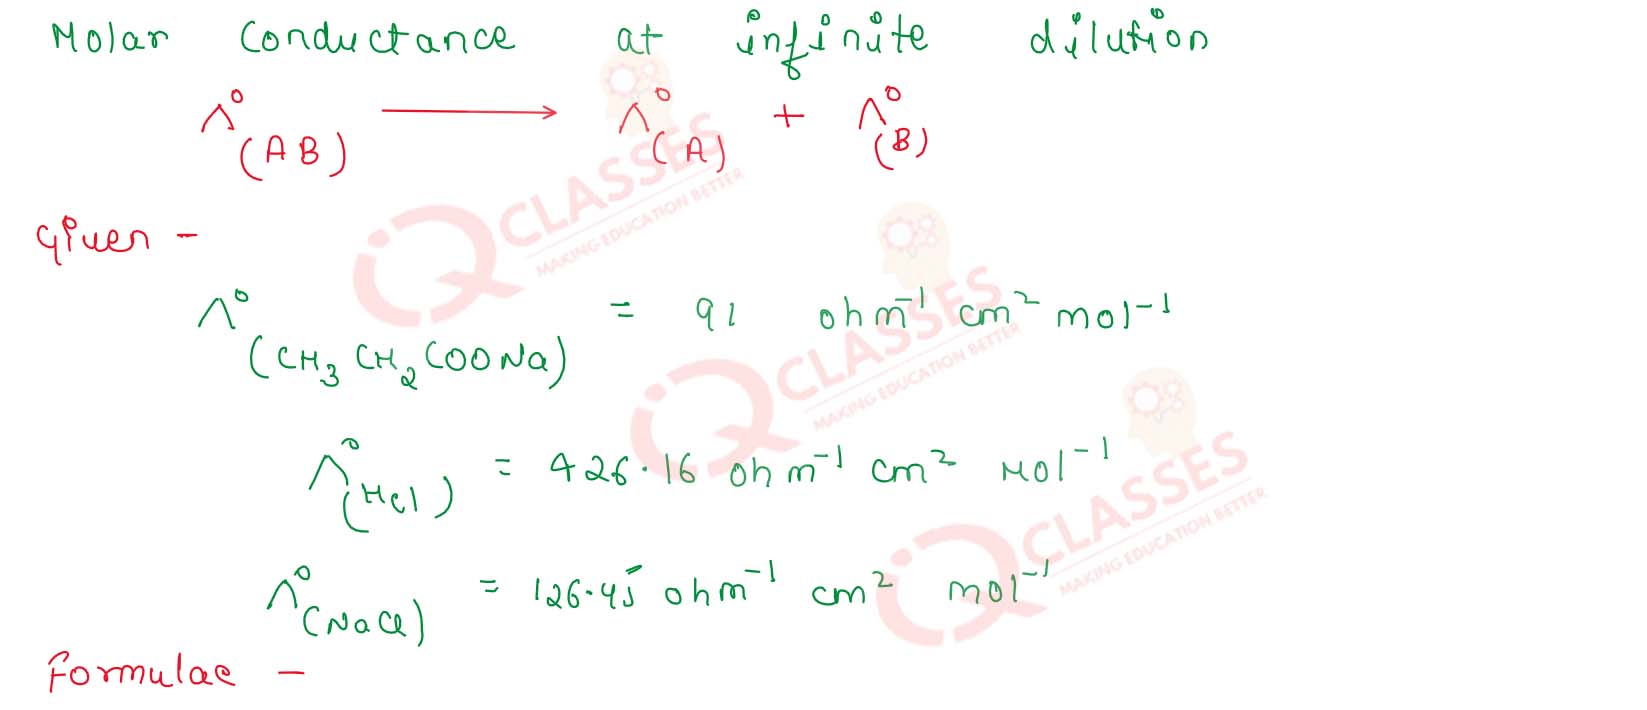 Molar Conductance at infinite dilution
Λ⁰(AB) ⟶ Λ⁰(A) + Λ⁰(B)
Given -
Λ⁰(CH₃CH₂COONa) = 91 ohm⁻¹ cm² mol⁻¹
Λ⁰(HCl) = 426.16 ohm⁻¹ cm² mol⁻¹
Λ⁰(NaCl) = 126.45 ohm⁻¹ cm² mol⁻¹
Formulae -
iQ CLASSES
MAKING EDUCATION BETTER
iQ CLASSES
MAKING EDUCATION BETTER
iQ CLASSES
MAKING EDUCATION BETTER